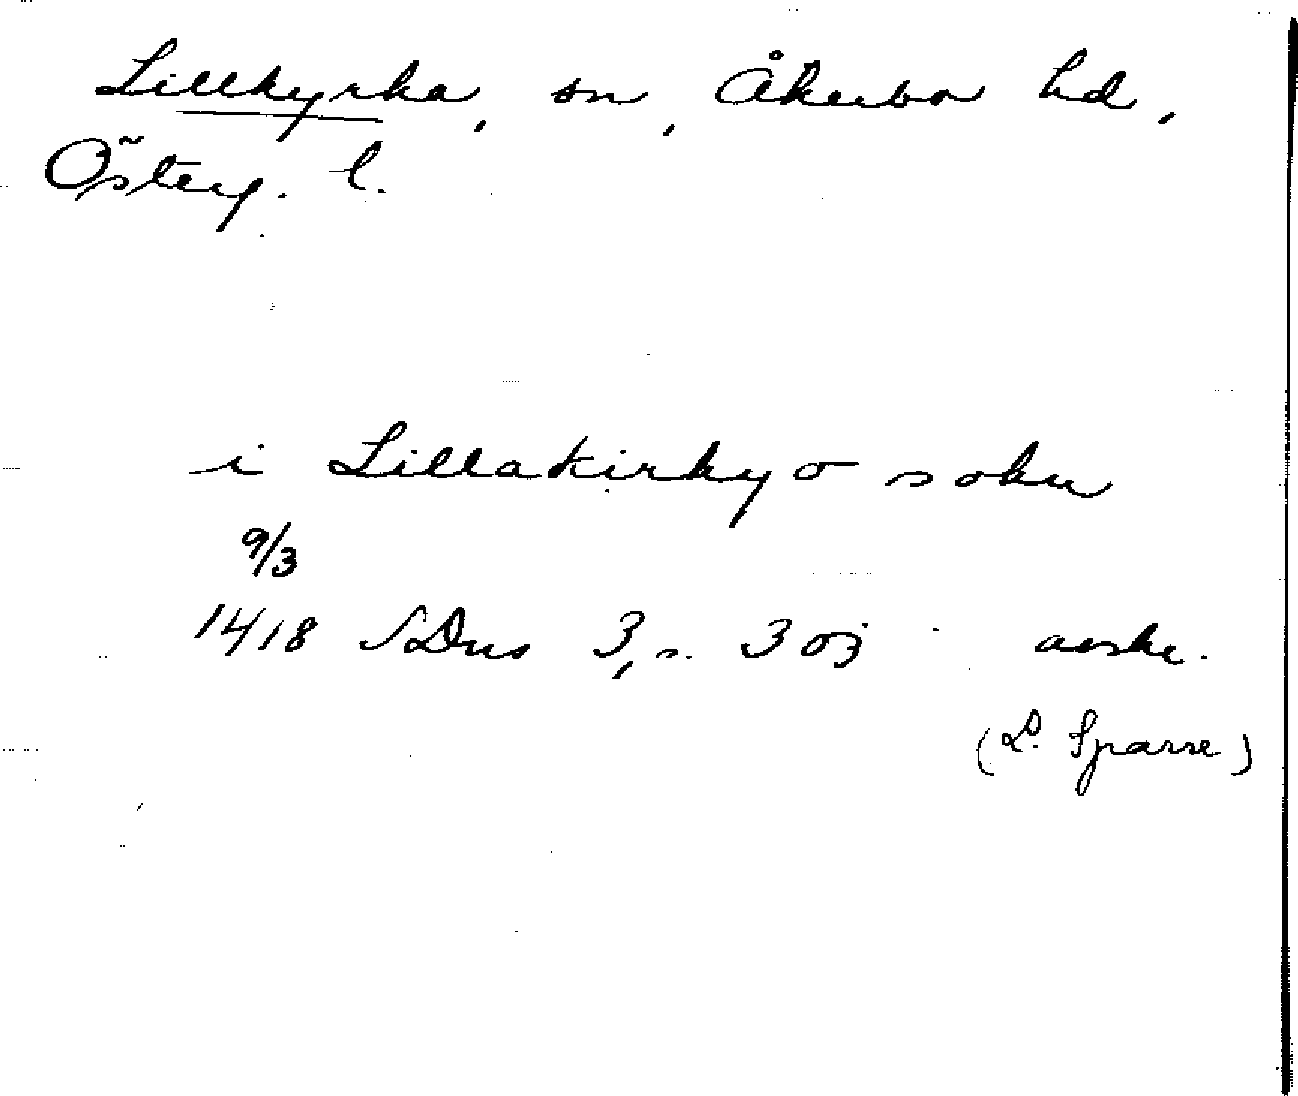 Lillkyrka, sn, Åkerbo hd,
Österg. l.
i Lillakirkyo sokn
9/3
1418 SDns 3, s. 303 avskr.
(L. Sparre)